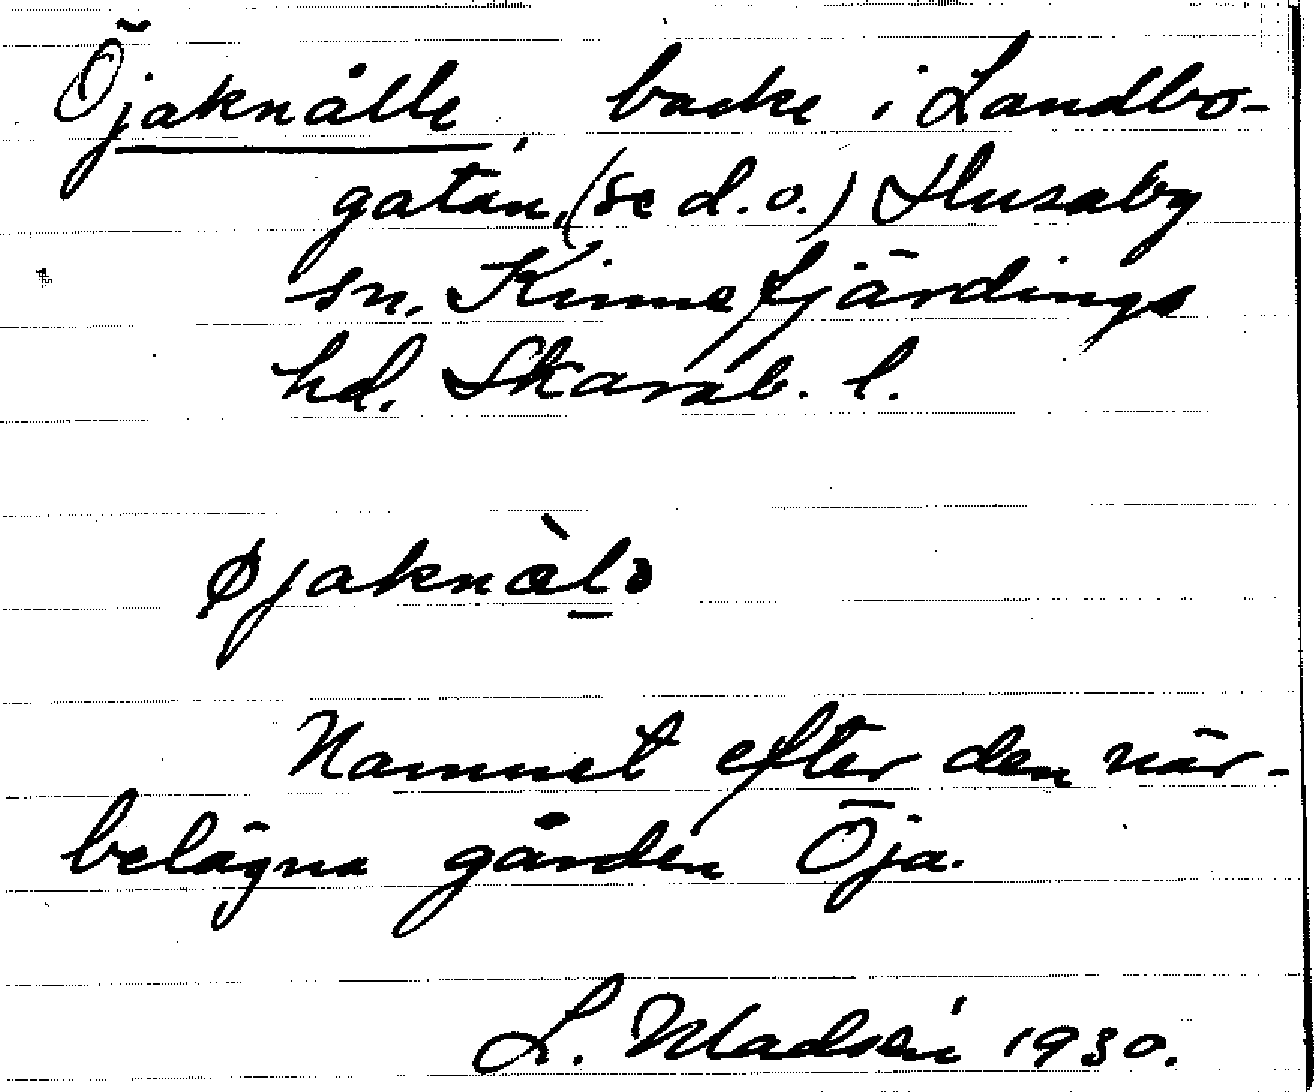 Öjaknälle, backe i Landbo-
gatan, (se d.o.) Husaby
sn. Kinnefjärdings
hd. Skarab. l.
øjaknàlə
Namnet efter den när-
belägna gården Öja.
L. Madsén 1930.